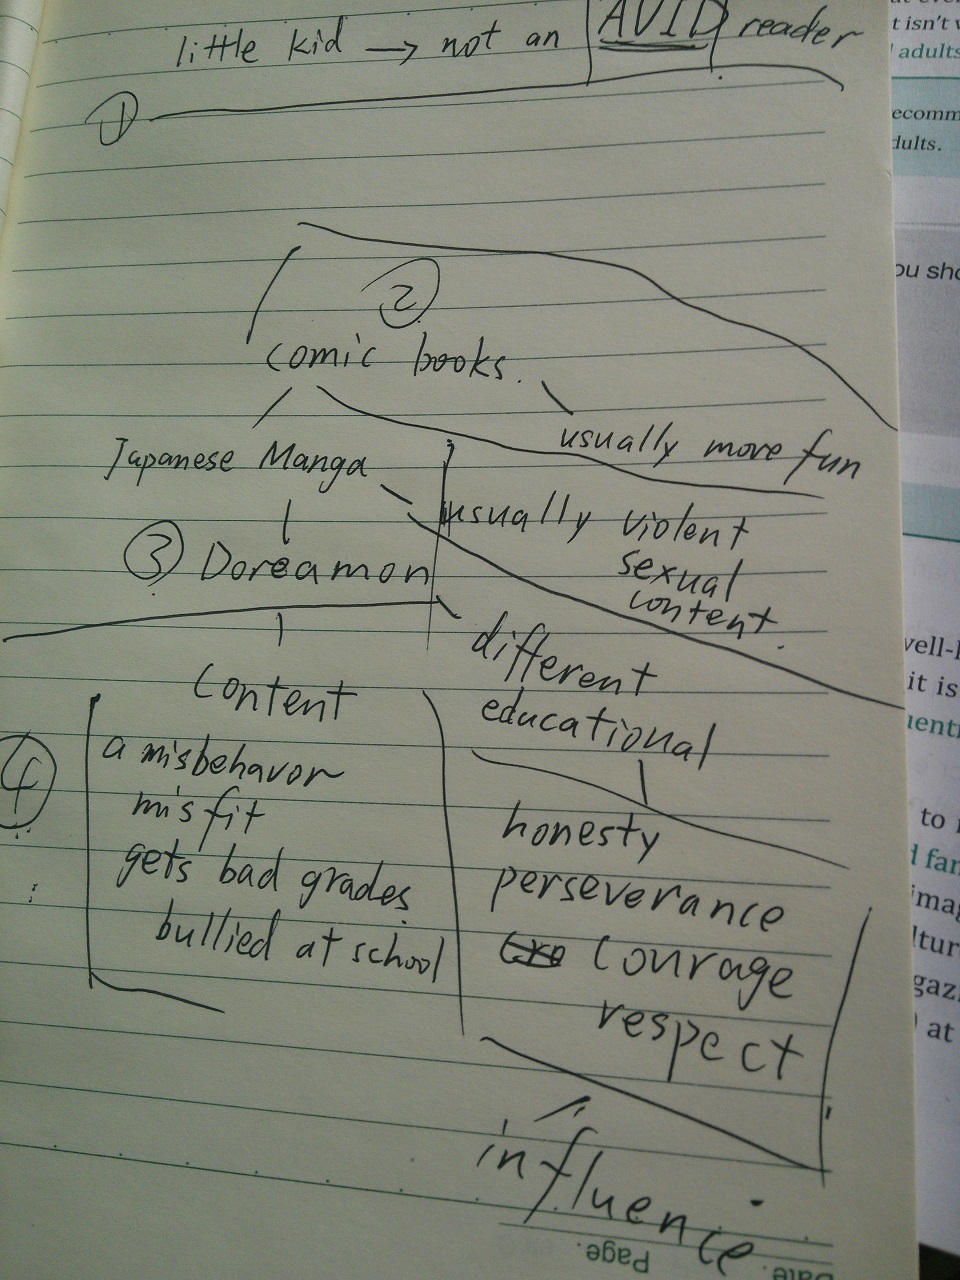 little kid → not an AVID reader
①
②
comic books.
usually more fun
Japanese Manga
usually violent
sexual
content.
③ Doreamon
different
educational
content
④
a misbehavor
misfit
gets bad grades
bullied at school
honesty
perseverance
courage
respect
influence
Page.
Date.
t isn't
adults
ecomm
dults.
ou sho
well-
it is
uenti
to
d fan
imag
ltur
gaz
) at